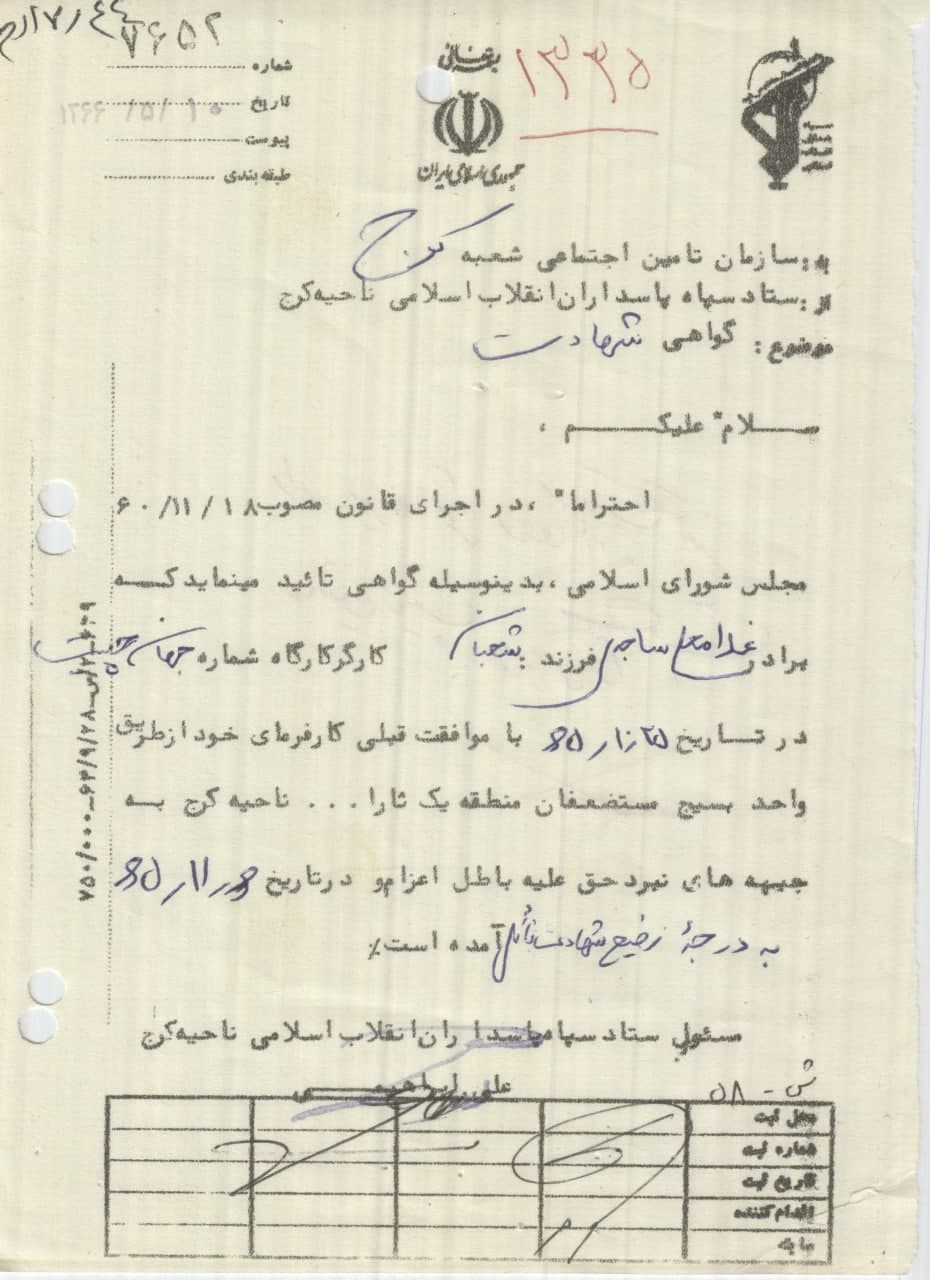 ۷۶۵۲
۱۳۳۵
بسمه‌تعالی
جمهوری اسلامی ایران
شماره
تاریخ ۱۳۶۶/۵/۱۰
پیوست
طبقه بندی
به: سازمان تامین اجتماعی شعبه کرج
از: ستاد سپاه پاسداران انقلاب اسلامی ناحیه کرج
موضوع: گواهی شهادت
سلام علیکم ،
احتراما" ، در اجرای قانون مصوب ۶۰/۱۱/۱۸
مجلس شورای اسلامی ، بدینوسیله گواهی تائید مینماید کـه
برادر غلامعلی فرزند : شعبان کارگر کارگاه شماره جهان چیت
در تاریخ با موافقت قبلی کارفرمای خود از طریق
واحد بسیج مستضعفان منطقه یک ثارا... ناحیه کرج به
جبهه های نبرد حق علیه باطل اعزام و در تاریخ
به درجهٔ رفیع شهادت نائل آمده است٪
مسئول ستاد سپاه پاسداران انقلاب اسلامی ناحیه کرج
ش - ۵۸
محل ثبت
شماره ثبت
تاریخ ثبت
اقدام کننده